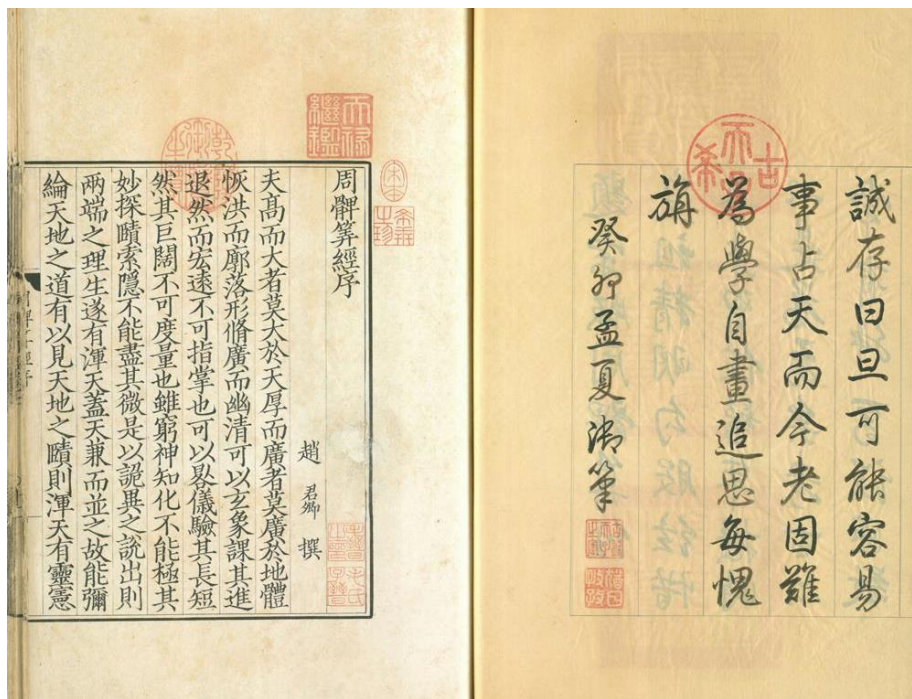 誠存曰旦可能容易
事占天而今老固難
為學自畫追思每愧
旃
癸卯孟夏御筆
古希天子
天祿繼鑑
宋本
希世之珍
周髀筭經序
趙君卿撰
夫髙而大者莫大於天厚而廣者莫廣於地體
恢洪而廓落形脩廣而幽清可以玄象課其進
退然而宏遠不可指掌也可以晷儀驗其長短
然其巨闊不可度量也雖窮神知化不能極其
妙探賾索隱不能盡其微是以詭異之說出則
兩端之理生遂有渾天蓋天兼而並之故能彌
綸天地之道有以見天地之賾則渾天有靈憲